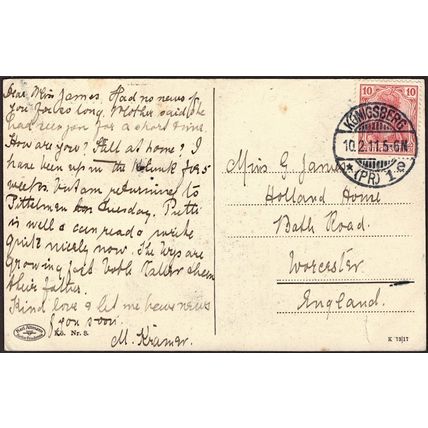 Dear Miss James. Had no news of
you for so long. Mother said she
had seen you for a short time.
How are you? Still at home? I
have been up in the for 5
weeks but am returning to
on Tuesday. Putti
is well & can read & write
quite nicely now. The boys are
growing fast both taller them
their father.
Kind love & let me have news
of you soon.
M. Krämer.
Kö. Nr. 8.
10
KÖNIGSBERG
10.2.11.5-6N
*(PR) 1.e
Miss G James
Holland Home
Bath Road.
Worcester
England.
K 1317